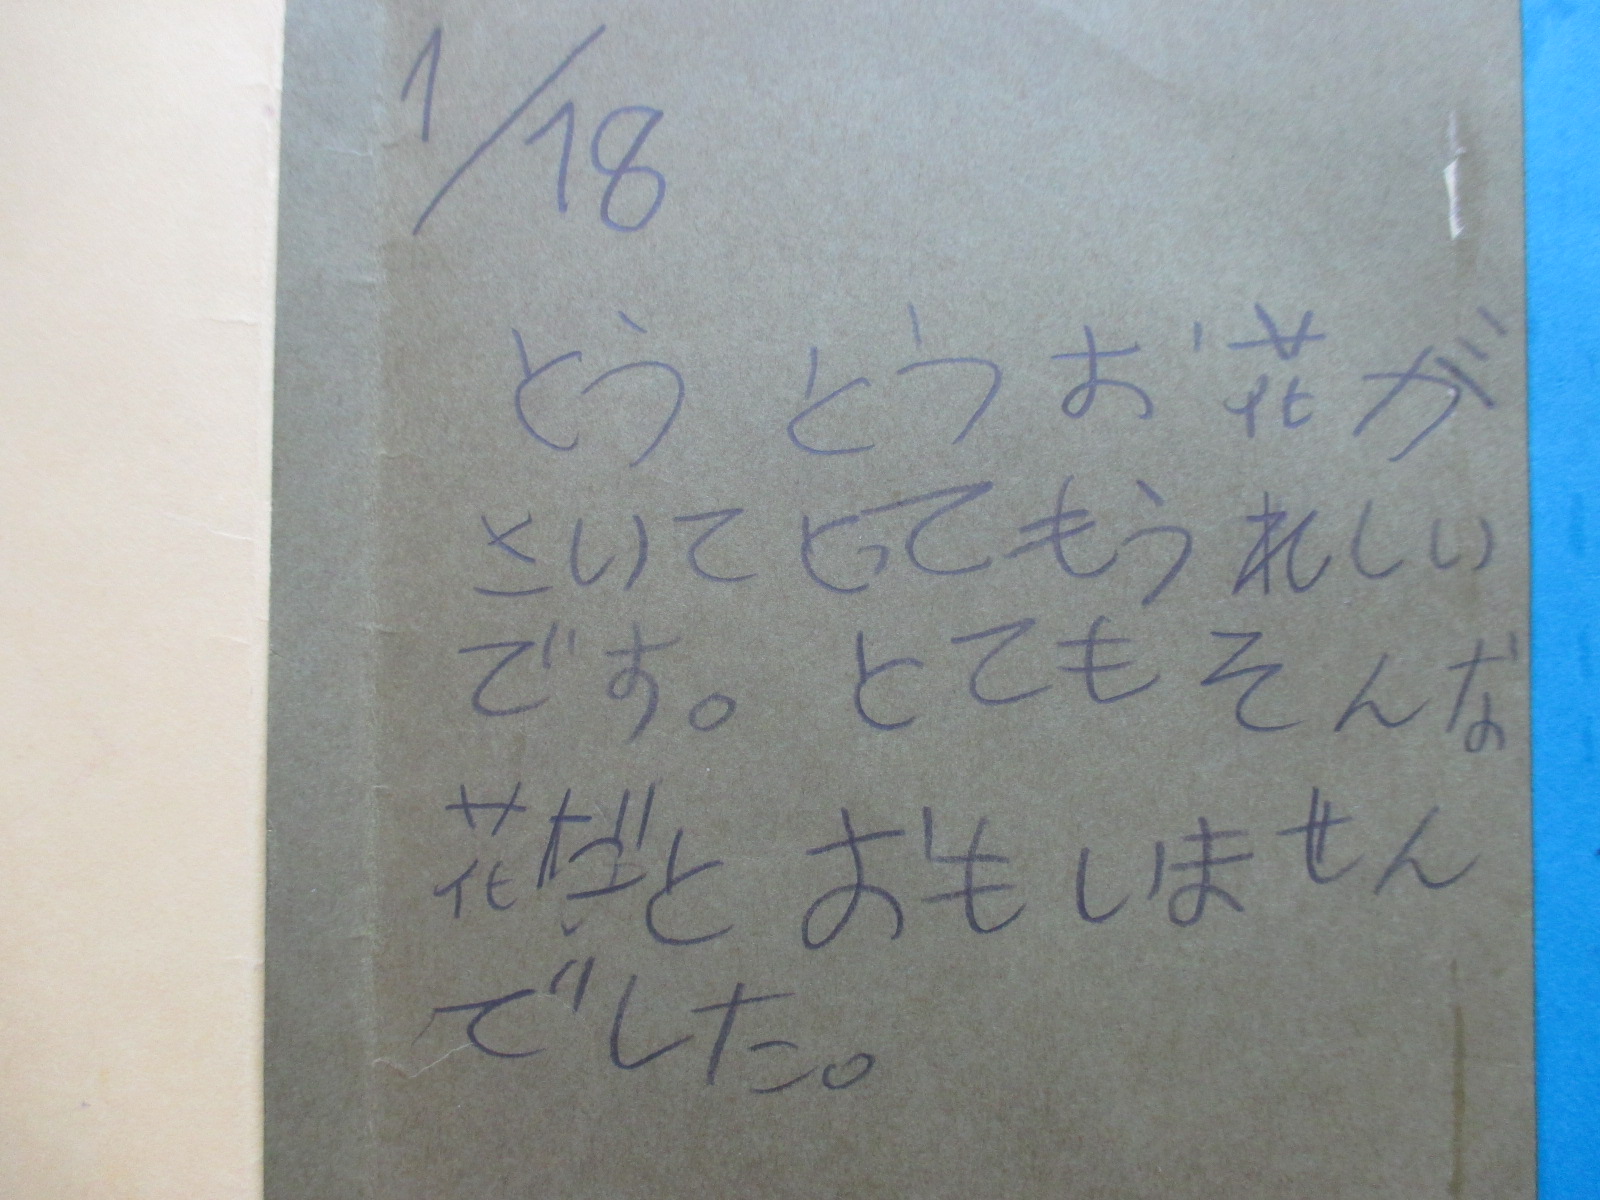 1/18
とうとうお花が
さいてとってもうれしい
です。とてもそんな
花だとおもいません
でした。